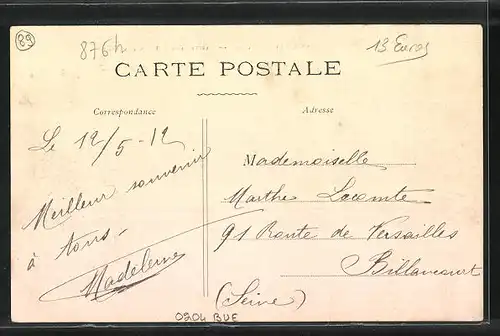 89
876h
13 Euros
CARTE POSTALE
Correspondance
Adresse
Le 12/5-12
Meilleur souvenir
à tous-
Madeleine
Mademoiselle
Marthe Lecomte
91 Route de Versailles
Billancourt
(Seine)
0204 BUE